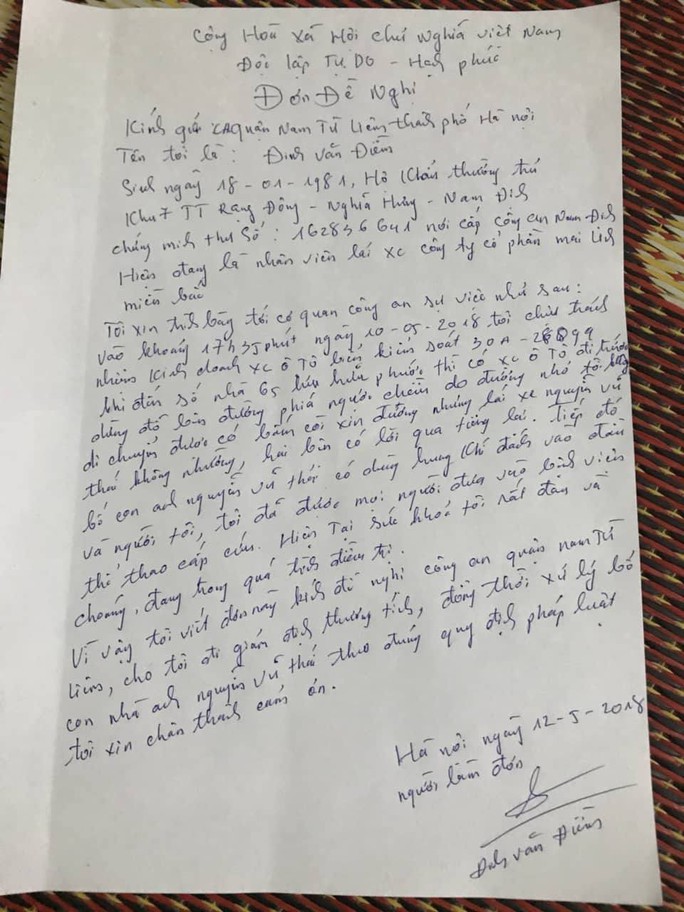 Cộng Hoà Xã Hội chủ Nghĩa Việt Nam
Độc lập Tự Do - Hạnh phúc
Đơn Đề Nghị
Kính gửi CAquận Nam Từ Liêm thành phố Hà nội
Tên tôi là : Đinh văn Điềm
Sinh ngày 18 - 01 - 1981, Hộ khẩu thường trú
Khu 7 TT Rạng Đông - Nghĩa Hưng - Nam Định
chứng minh thư số : 162836641 nơi cấp công an Nam Định
Hiện đang là nhân viên lái xe công ty cổ phần mai linh
miền bắc
Tôi xin trình bày tới cơ quan công an sự việc như sau :
vào khoảng 17h35phút ngày 10-05-2018 tôi chịu trách
nhiệm kinh doanh xe ô tô biển kiểm soát 30A-
khi đến số nhà 65 lưu hữu phước thì có xe ô tô đi trước
dừng đỗ bên đường phía ngược chiều do đường nhỏ tôi
di chuyển được có bấm còi xin đường nhưng lái xe nguyễn vũ
thái không nhường, hai bên có lời qua tiếng lại. tiếp đó
bố con anh nguyễn vũ thái có dùng hung khí đánh vào đầu
và người tôi, tôi đã được mọi người đưa vào bệnh viện
thể thao cấp cứu. Hiện Tại sức khoẻ tôi rất đau và
choáng, đang trong quá trình điều trị.
Vì vậy tôi viết đơn này kính đề nghị công an quận nam Từ
liêm, cho tôi đi giám định thương tích, đồng thời xử lý bố
con nhà anh nguyễn vũ thái theo đúng quy định pháp luật
tôi xin chân thành cảm ơn.
Hà nội ngày 12-5-2018
người làm đơn
Đinh văn Điềm